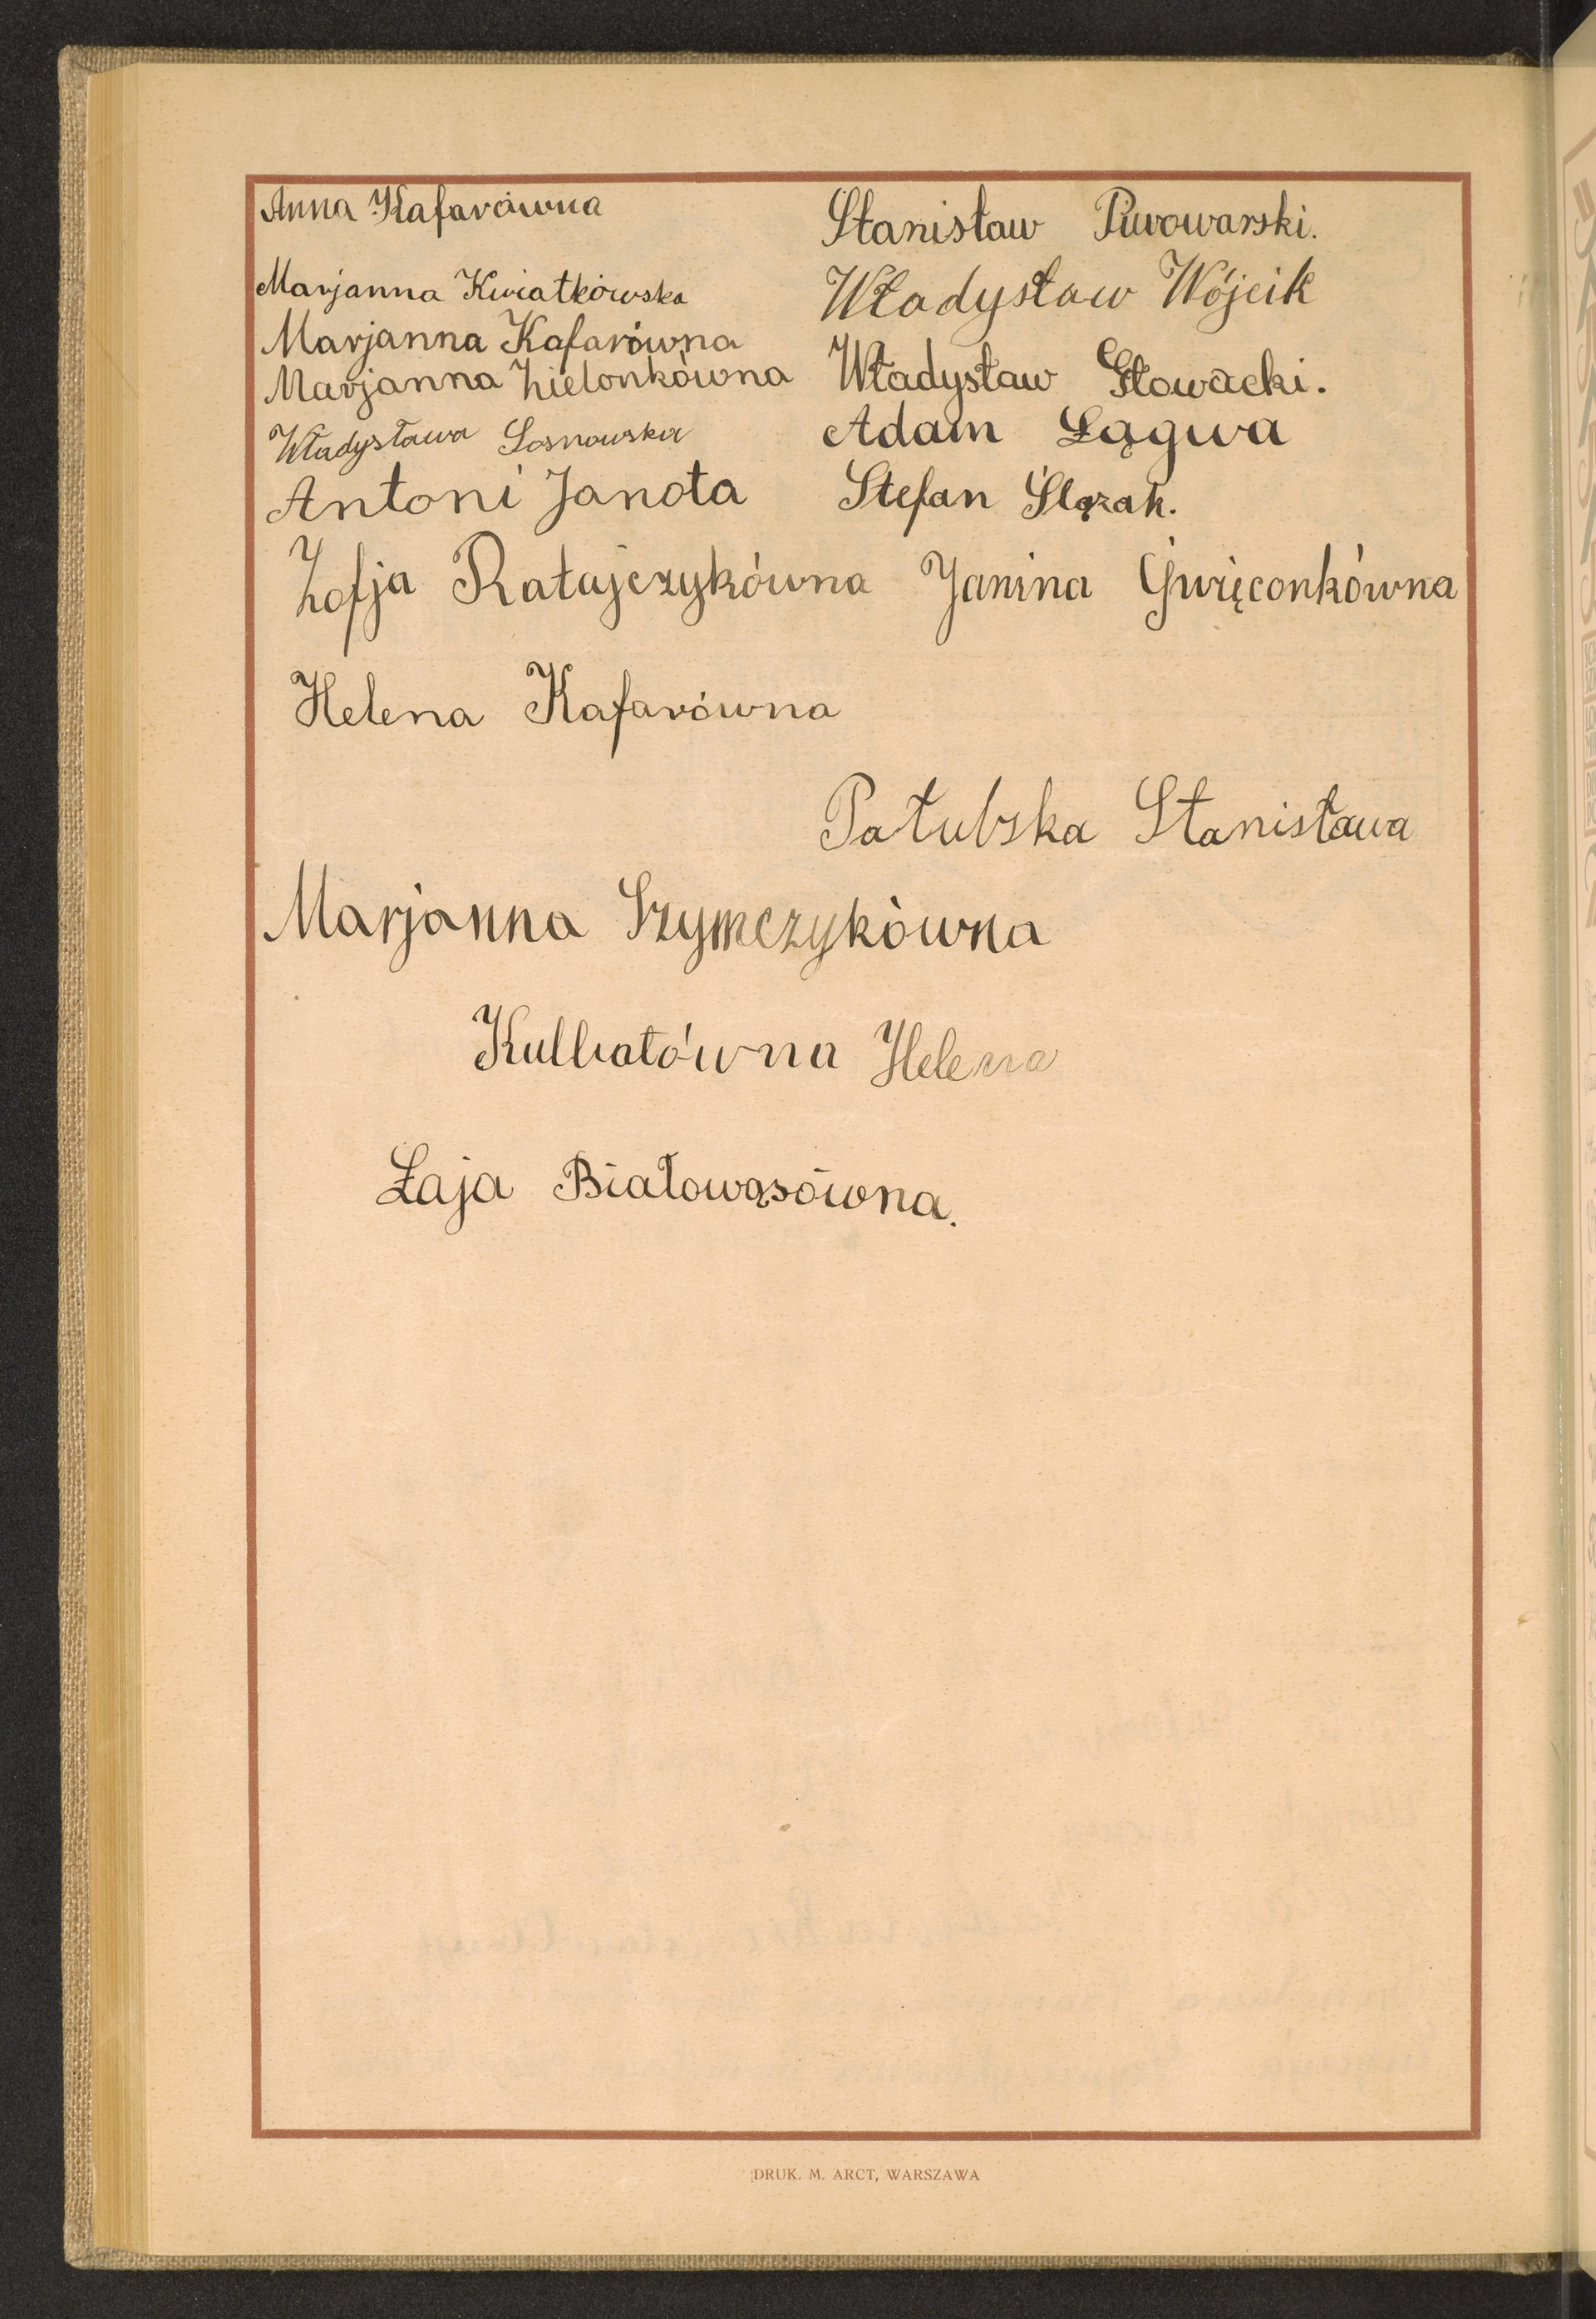 Anna Kafarówna
Stanisław Piwowarski.
Marjanna Kwiatkowska
Władysław Wójcik
Marjanna Kafarówna
Marjanna Zielonkówna
Władysław Głowacki.
Władysława Sosnowska
Adam Łągwa
Antoni Janota
Stefan Ślązak.
Zofja Ratajczykówna Janina Święconkówna
Helena Kafarówna
Pałubska Stanisława
Marjanna Szymczykówna
Kulbatówna Helena
Łaja Białowąsówna.
DRUK. M. ARCT, WARSZAWA